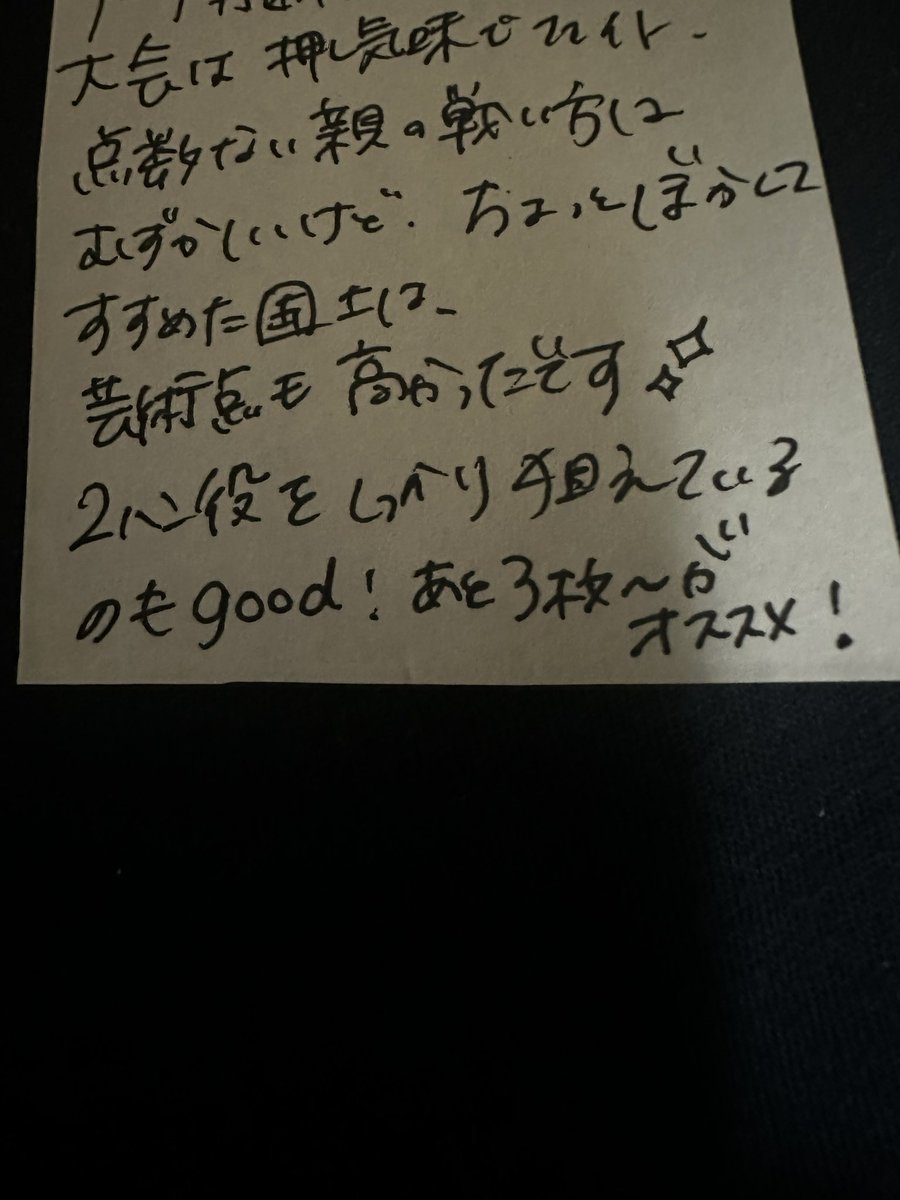 大会は押し気味でファイト.
点数ない親の戦い方は
むずかしいけど、ちょっとぼかして
すすめた国士は、
芸術点も高かったです
2ハン役をしっかり狙えている
のもgood!あと3枚〜が
オススメ!